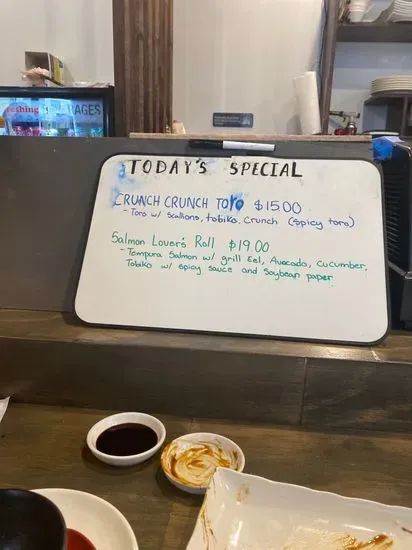 eshing
AGES
TODAY'S SPECIAL
CRUNCH CRUNCH TORO $15.00
- Toro w/ Scallions, tobiko, Crunch (Spicy toro)
Salmon Lover's Roll $19.00
- Tempura Salmon w/ grill Eel, Avocado, Cucumber,
Tobiko w/ spicy sauce and Soybean paper